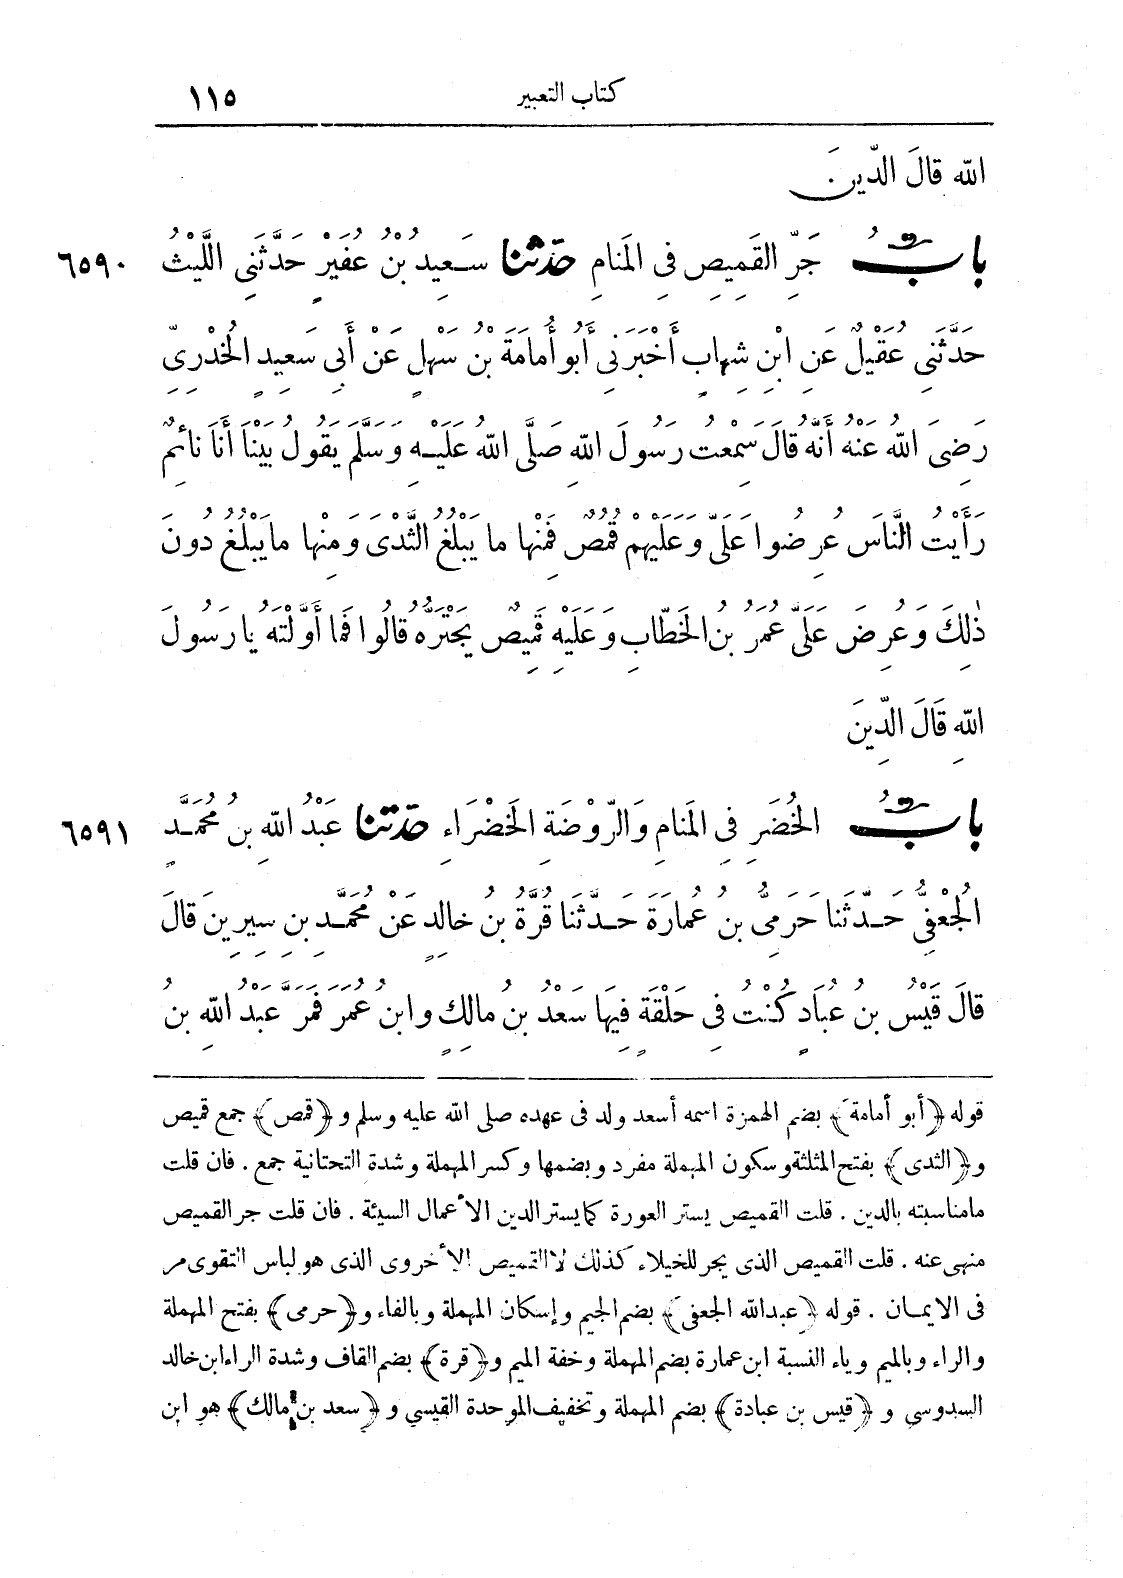 كتاب التعبير ١١٥
الله قالَ الدِّينَ
بابُ جَرِّ القَمِيصِ فِى المَنامِ حدّثنا سَعِيدُ بْنُ عُفَيْرٍ حَدَّثَنِى اللَّيْثُ ٦٥٩٠
حَدَّثَنِى عُقَيْلٌ عَنِ ابْنِ شِهابٍ أَخْبَرَنِى أَبُو أُمامَةَ بْنُ سَهْلٍ عَنْ أَبِى سَعِيدٍ الخُدْرِىِّ
رَضِىَ اللهُ عَنْهُ أَنَّهُ قالَ سَمِعْتُ رَسُولَ اللهِ صَلَّى اللهُ عَلَيْهِ وَسَلَّمَ يَقُولُ بَيْنَا أَنَا نائِمٌ
رَأَيْتُ النَّاسَ عُرِضُوا عَلَىَّ وَعَلَيْهِمْ قُمُصٌ فَمِنْها ما يَبْلُغُ الثَّدْىَ وَمِنْها مايَبْلُغُ دُونَ
ذٰلِكَ وَعُرِضَ عَلَىَّ عُمَرُ بْنُ الخَطَّابِ وَعَلَيْهِ قَمِيصٌ يَجْتَرُّهُ قالُوا فَما أَوَّلْتَهُ يا رَسُولَ
اللهِ قَالَ الدِّينَ
بابُ الخُضَرِ فِى المَنامِ وَالرَّوْضَةِ الخَضْرَاءِ حدّثنا عَبْدُ اللهِ بنُ مُحَمَّدٍ ٦٥٩١
الجُعْفِىُّ حَدَّثَنا حَرَمِىُّ بنُ عُمارَةَ حَدَّثَنا قُرَّةُ بنُ خالِدٍ عَنْ مُحَمَّدِ بنِ سِيرِينَ قالَ
قالَ قَيْسُ بنُ عُبَادٍ كُنْتُ فِى حَلْقَةٍ فِيهَا سَعْدُ بنُ مالِكٍ وابنُ عُمَرَ فَمَرَّ عَبْدُ اللهِ بنُ
قوله ﴿أبو أمامة﴾ بضم الهمزة اسمه أسعد ولد فى عهده صلى الله عليه وسلم و ﴿قمص﴾ جمع قميص
و ﴿الثدى﴾ بفتح المثلثة وسكون المهملة مفرد وبضمها وكسر المهملة وشدة التحتانية جمع . فان قلت
مامناسبته بالدين . قلت القميص يستر العورة كما يستر الدين الأعمال السيئة . فان قلت جر القميص
منهى عنه . قلت القميص الذى يجر للخيلاء كذلك لا القميص الأخروى الذى هو لباس التقوى مر
فى الايمان . قوله ﴿عبدالله الجعفى﴾ بضم الجيم وإسكان المهملة وبالفاء و ﴿حرمى﴾ بفتح المهملة
والراء وبالميم وياء النسبة ابن عمارة بضم المهملة وخفة الميم و ﴿قرة﴾ بضم القاف وشدة الراء ابن خالد
السدوسي و ﴿قيس بن عبادة﴾ بضم المهملة وتخفيف الموحدة القيسي و ﴿سعد بن مالك﴾ هو ابن